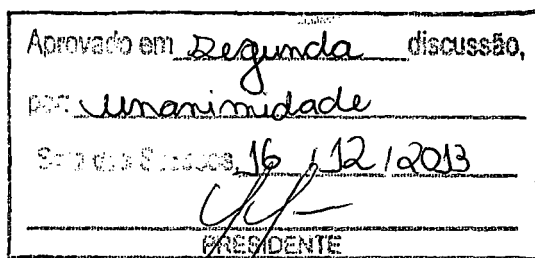 Aprovado em Segunda discussão,
por unanimidade
Sala das Sessões, 16 / 12 / 2013
PRESIDENTE